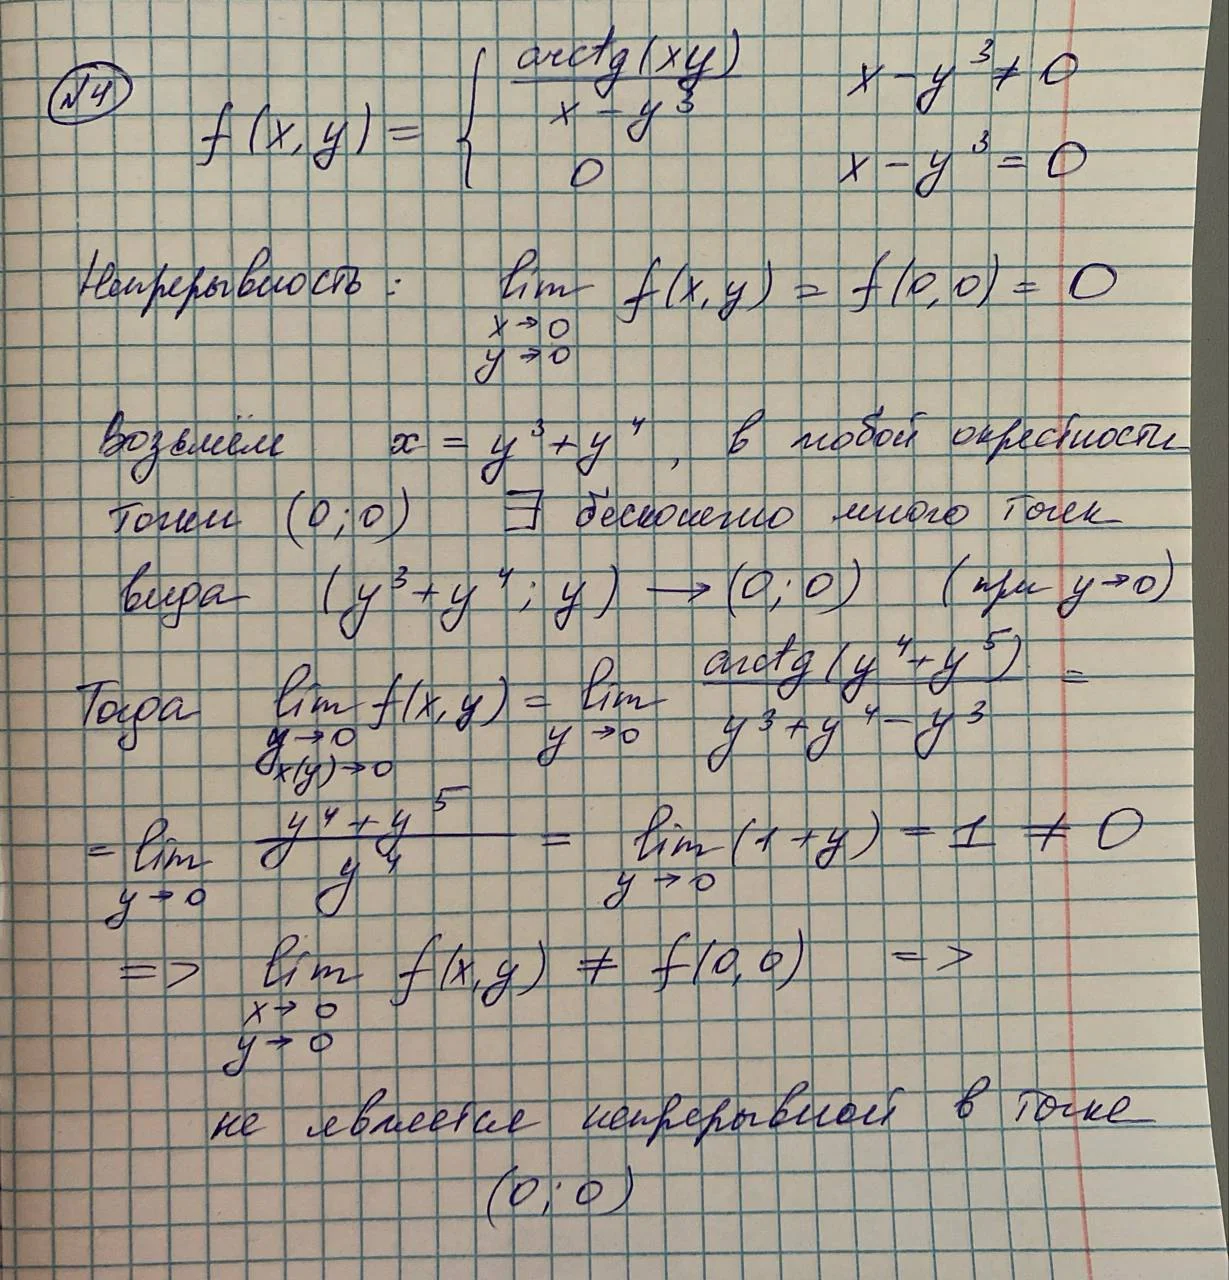 №4
f(x,y) = { arctg(xy) / (x - y³)   x - y³ ≠ 0
0   x - y³ = 0
Непрерывность: lim f(x,y) = f(0,0) = 0
x→0
y→0
Возьмём x = y³ + y⁴, в любой окрестности
точки (0;0) ∃ бесконечно много точек
вида (y³+y⁴; y) → (0;0) (при y→0)
Тогда lim f(x,y) = lim arctg(y⁴+y⁵) / (y³+y⁴-y³) =
y→0 y→0
x(y)→0
= lim (y⁴+y⁵) / y⁴ = lim (1+y) = 1 ≠ 0
y→0 y→0
=> lim f(x,y) ≠ f(0,0) =>
x→0
y→0
не является непрерывной в точке
(0;0)